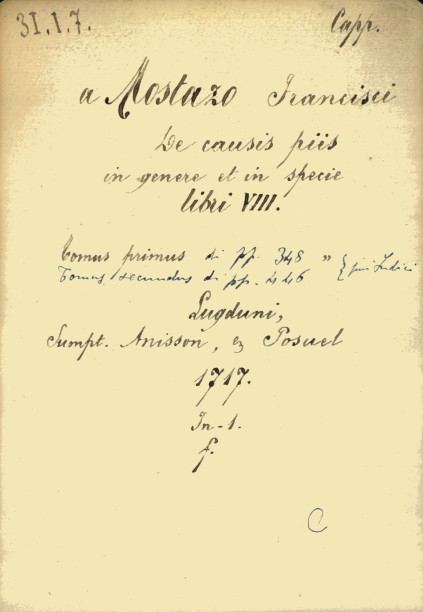 31.I.7.
Capp.
a Mostazo Francisci
De causis piis
in genere et in specie
libri VIII.
Tomus primus di pp. 348 " } più Indici
Tomus secundus di pp. 446
Lugduni,
Sumpt. Anisson, & Posuel
1717.
In-1.
f.
C